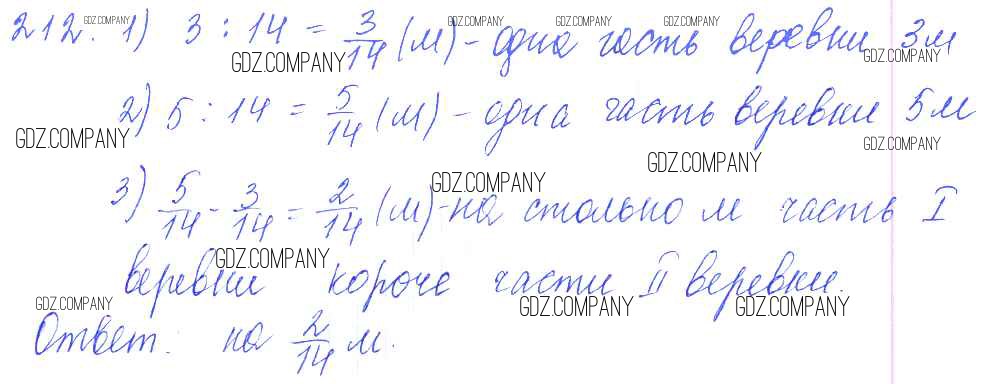 212. 1) 3 : 14 = 3/14 (м) - одна часть веревки 3м
2) 5 : 14 = 5/14 (м) - одна часть веревки 5м
3) 5/14 - 3/14 = 2/14 (м) - на столько м часть I
веревки короче части II веревки.
Ответ: на 2/14 м.
GDZ.COMPANY GDZ.COMPANY GDZ.COMPANY GDZ.COMPANY
GDZ.COMPANY GDZ.COMPANY
GDZ.COMPANY GDZ.COMPANY
GDZ.COMPANY GDZ.COMPANY
GDZ.COMPANY
GDZ.COMPANY GDZ.COMPANY GDZ.COMPANY